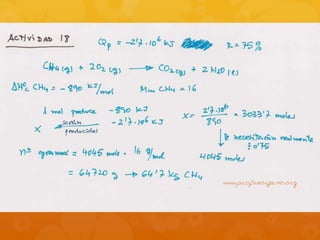 ACTIVIDAD 18
Qp = -2'7·10⁶ KJ R = 75%
CH4 (g) + 2O2 (g) → CO2 (g) + 2 H2O (l)
ΔHºc CH4 = -890 KJ/mol Mm CH4 = 16
1 mol produce -890 KJ
X serán producidos -2'7·10⁶ KJ
X = 2'7·10⁶ / 890 = 3033'7 moles
se necesitarán realmente
: 0'75
4045 moles
nº gramos = 4045 mole · 16 g/mol
= 64720 g → 64'7 kg CH4
www.profesorjano.org